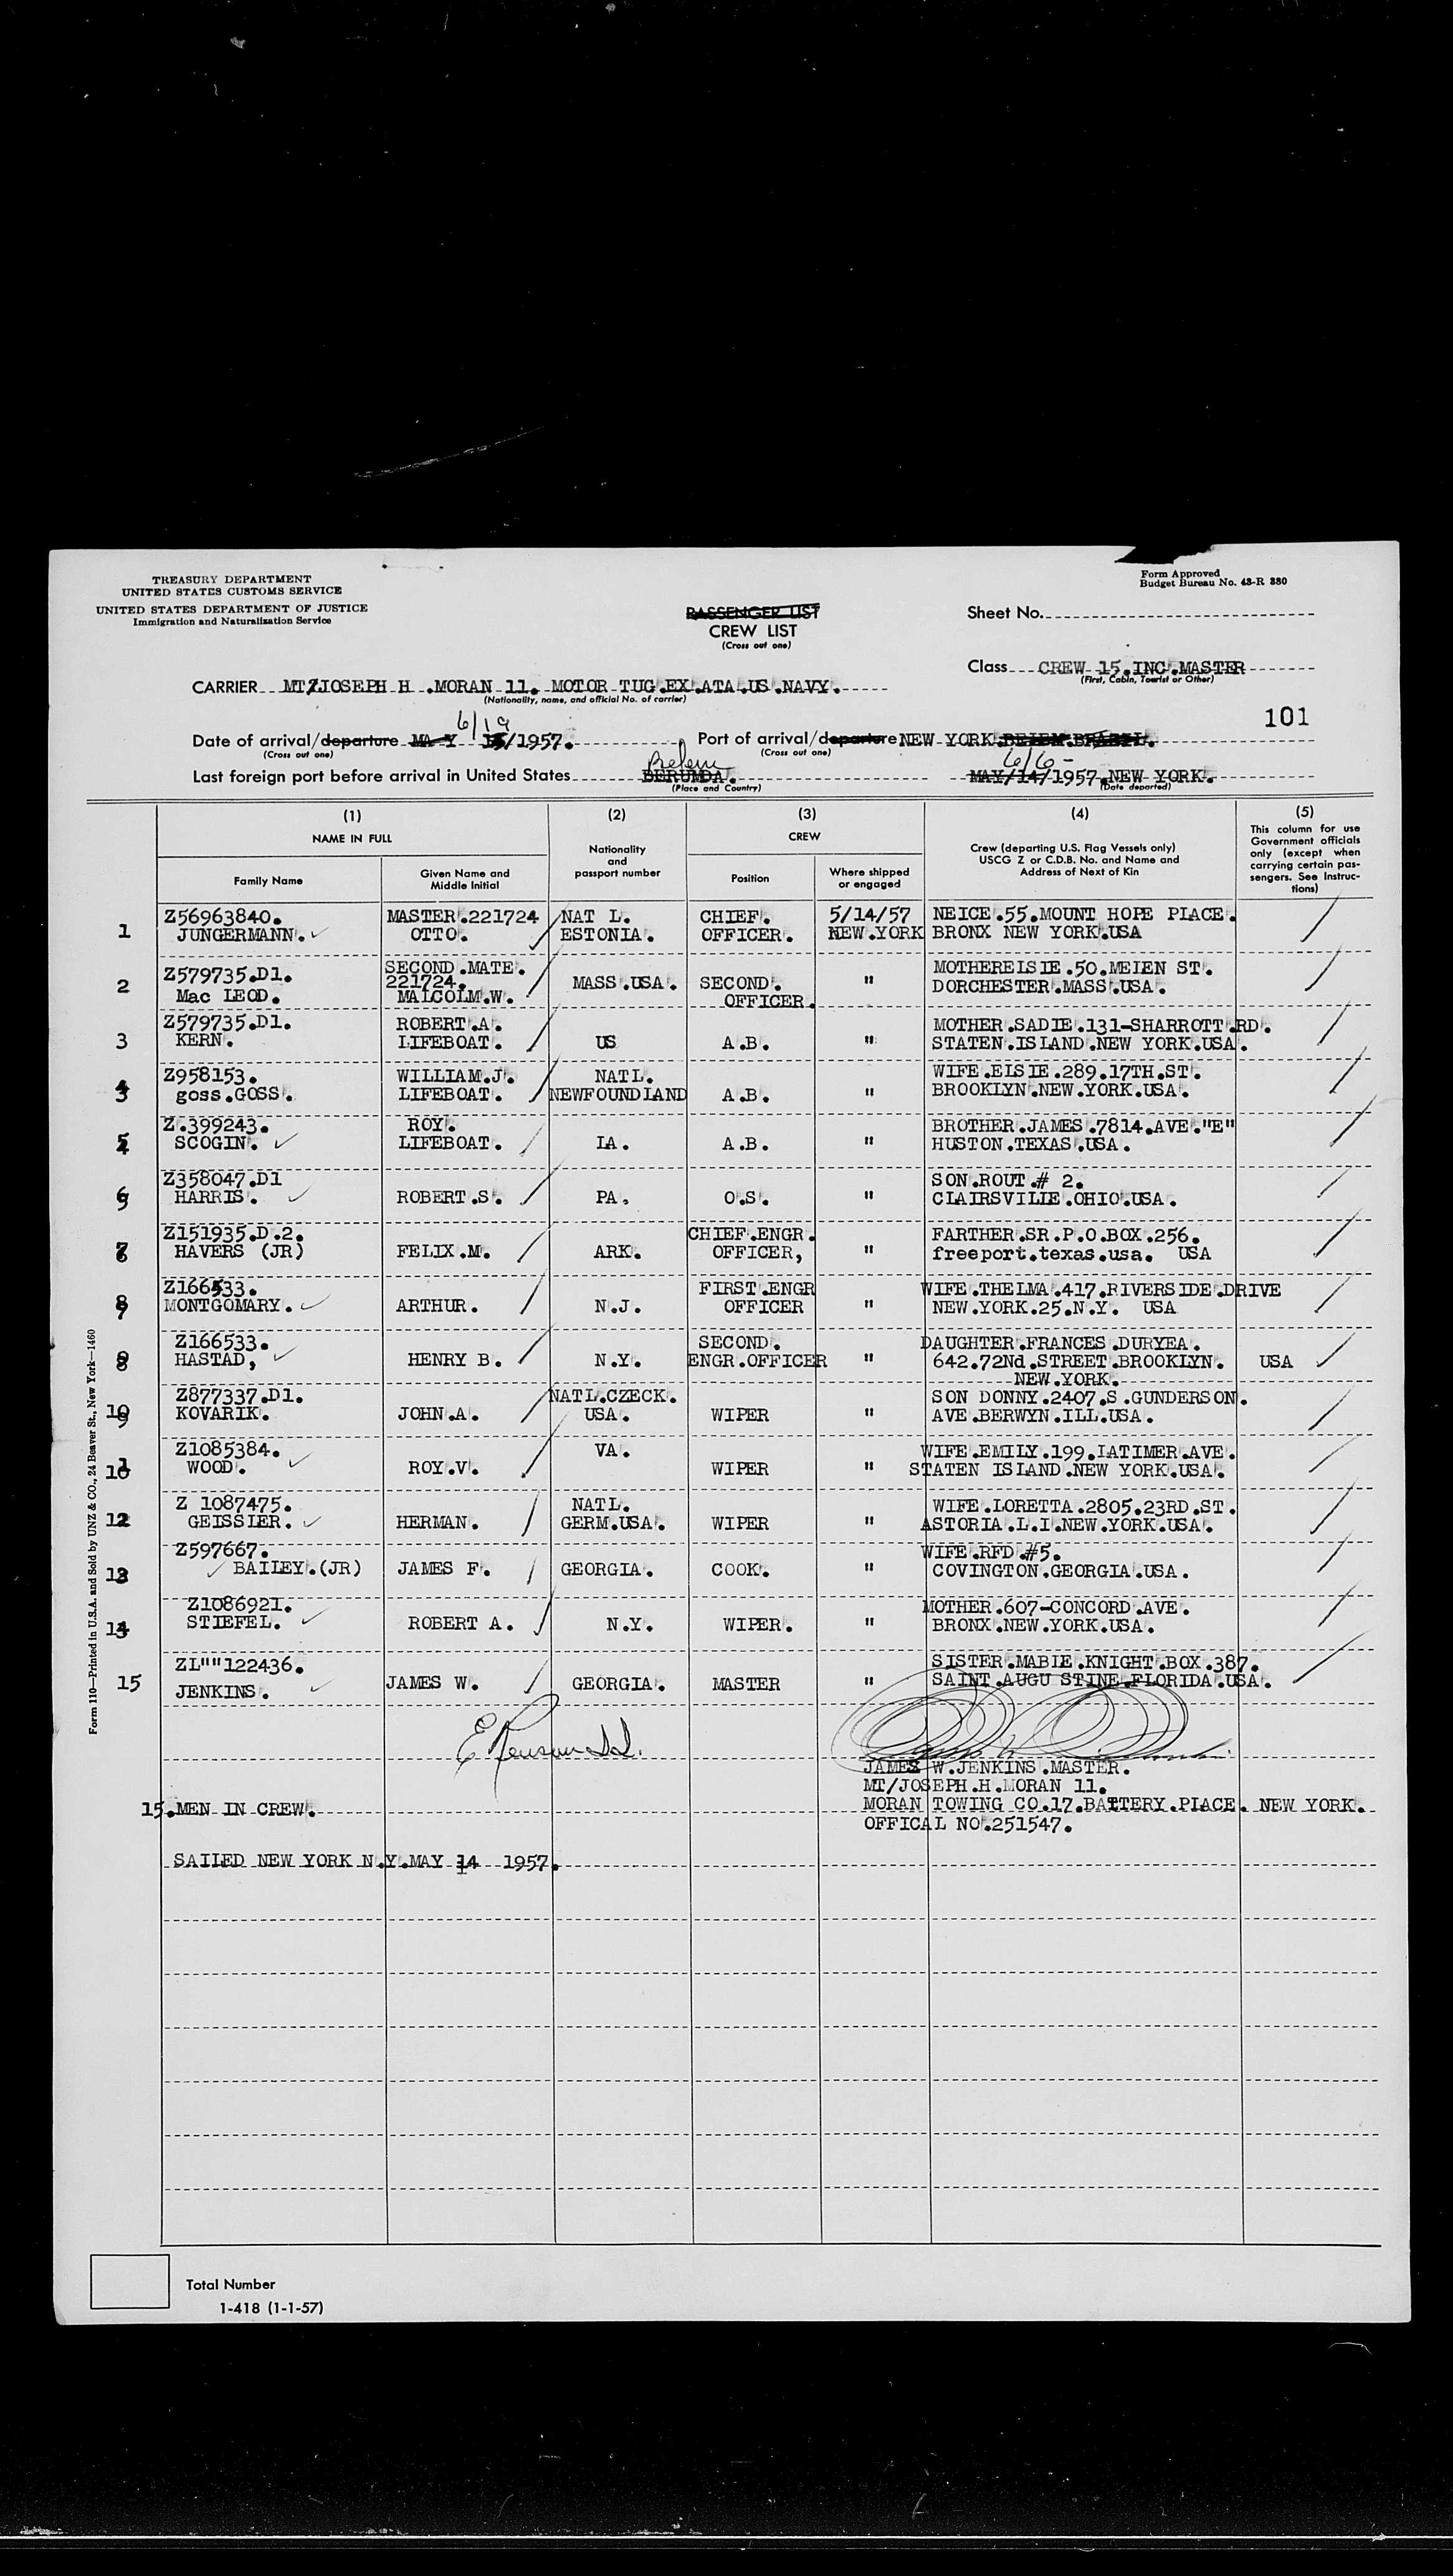 TREASURY DEPARTMENT
UNITED STATES CUSTOMS SERVICE
UNITED STATES DEPARTMENT OF JUSTICE
Immigration and Naturalization Service
Form Approved
Budget Bureau No. 43-R 380
PASSENGER LIST
CREW LIST
(Cross out one)
Sheet No.
Class CREW 15.INC.MASTER
(First, Cabin, Tourist or Other)
CARRIER MT/JOSEPH H .MORAN 11. MOTOR TUG.EX.ATA.US.NAVY.
(Nationality, name, and official No. of carrier)
101
6/19
Date of arrival/departure MA Y 15/1957.
(Cross out one)
Port of arrival/departure NEW YORK.BELEM.BRAZIL.
(Cross out one)
Belem
6/6-
Last foreign port before arrival in United States BERUMDA.
(Place and Country)
MAY/14/1957.NEW YORK.
(Date departed)
(1) (2) (3) (4) (5)
NAME IN FULL
Nationality and passport number
CREW
Crew (departing U.S. Flag Vessels only) USCG Z or C.D.B. No. and Name and Address of Next of Kin
This column for use Government officials only (except when carrying certain passengers. See Instructions)
Family Name
Given Name and Middle Initial
Position
Where shipped or engaged
Z56963840. MASTER.221724 NAT L. CHIEF. 5/14/57 NEICE.55.MOUNT HOPE PLACE.
1 JUNGERMANN. OTTO. ESTONIA. OFFICER. NEW.YORK BRONX NEW YORK.USA
SECOND.MATE.
Z579735.D1. 221724. MASS.USA. SECOND. " MOTHEREISIE.50.MEIEN ST.
2 Mac LEOD. MALCOLM.W. OFFICER. DORCHESTER.MASS.USA.
Z579735.D1. ROBERT.A. MOTHER.SADIE.131-SHARROTT.RD.
3 KERN. LIFEBOAT. US A.B. " STATEN.ISLAND.NEW YORK.USA.
Z958153. WILLIAM.J. NATL. WIFE.EISIE.289.17TH.ST.
4 goss.GOSS. LIFEBOAT. NEWFOUNDLAND A.B. " BROOKLYN.NEW.YORK.USA.
Z.399243. ROY. BROTHER.JAMES.7814.AVE."E"
5 SCOGIN. LIFEBOAT. IA. A.B. " HUSTON.TEXAS.USA.
Z358047.D1 SON.ROUT.# 2.
6 HARRIS. ROBERT.S. PA. O.S. " CLAIRSVILIE.OHIO.USA.
Z151935.D.2. CHIEF.ENGR. FARTHER.SR.P.O.BOX.256.
7 HAVERS (JR) FELIX.M. ARK. OFFICER, " freeport.texas.usa. USA
Z166533. FIRST.ENGR WIFE.THELMA.417.RIVERSIDE.DRIVE
8 MONTGOMARY. ARTHUR. N.J. OFFICER " NEW.YORK.25.N.Y. USA
Z166533. SECOND. DAUGHTER.FRANCES.DURYEA.
9 HASTAD, HENRY B. N.Y. ENGR.OFFICER " 642.72Nd.STREET.BROOKLYN. USA
NEW.YORK.
Z877337.D1. NATL.CZECK. SON DONNY.2407.S.GUNDERSON.
10 KOVARIK. JOHN.A. USA. WIPER " AVE.BERWYN.ILL.USA.
Z1085384. VA. WIFE.EMILY.199.IATIMER.AVE.
11 WOOD. ROY.V. WIPER " STATEN ISLAND.NEW YORK.USA.
Z 1087475. NATL. WIFE.LORETTA.2805.23RD.ST.
12 GEISSIER. HERMAN. GERM.USA. WIPER " ASTORIA.L.I.NEW.YORK.USA.
Z597667. WIFE.RFD.#5.
13 BAILEY.(JR) JAMES F. GEORGIA. COOK. " COVINGTON.GEORGIA.USA.
Z1086921. MOTHER.607-CONCORD.AVE.
14 STIEFEL. ROBERT A. N.Y. WIPER. " BRONX.NEW.YORK.USA.
ZL""122436. SISTER.MABIE.KNIGHT.BOX.387.
15 JENKINS. JAMES W. GEORGIA. MASTER " SAINT.AUGU STINE.FLORIDA.USA.
JAMES W.JENKINS.MASTER.
MT/JOSEPH.H.MORAN 11.
15.MEN IN CREW. MORAN TOWING CO.17.BATTERY.PLACE. NEW YORK.
OFFICAL NO.251547.
SAILED NEW YORK N.Y.MAY 14 1957.
Form 110—Printed in U.S.A. and Sold by UNZ & CO., 24 Beaver St., New York—1460
Total Number
1-418 (1-1-57)